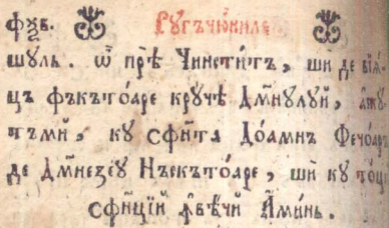 фѹв. Рꙋгъчюниле
шꙋль. ѿ прѣ Чинстит, ши де вїѧ
цъ фъкътоаре крꙋче Дм҃нꙋлꙋй, ажꙋ
тъмй, кꙋ сфинта Доамнъ Фечоаръ
де Дм҃неꙁеꙋ Нъскътоаре, ший кꙋ тоци
сфинїй ꙟвѣчй Аминь.